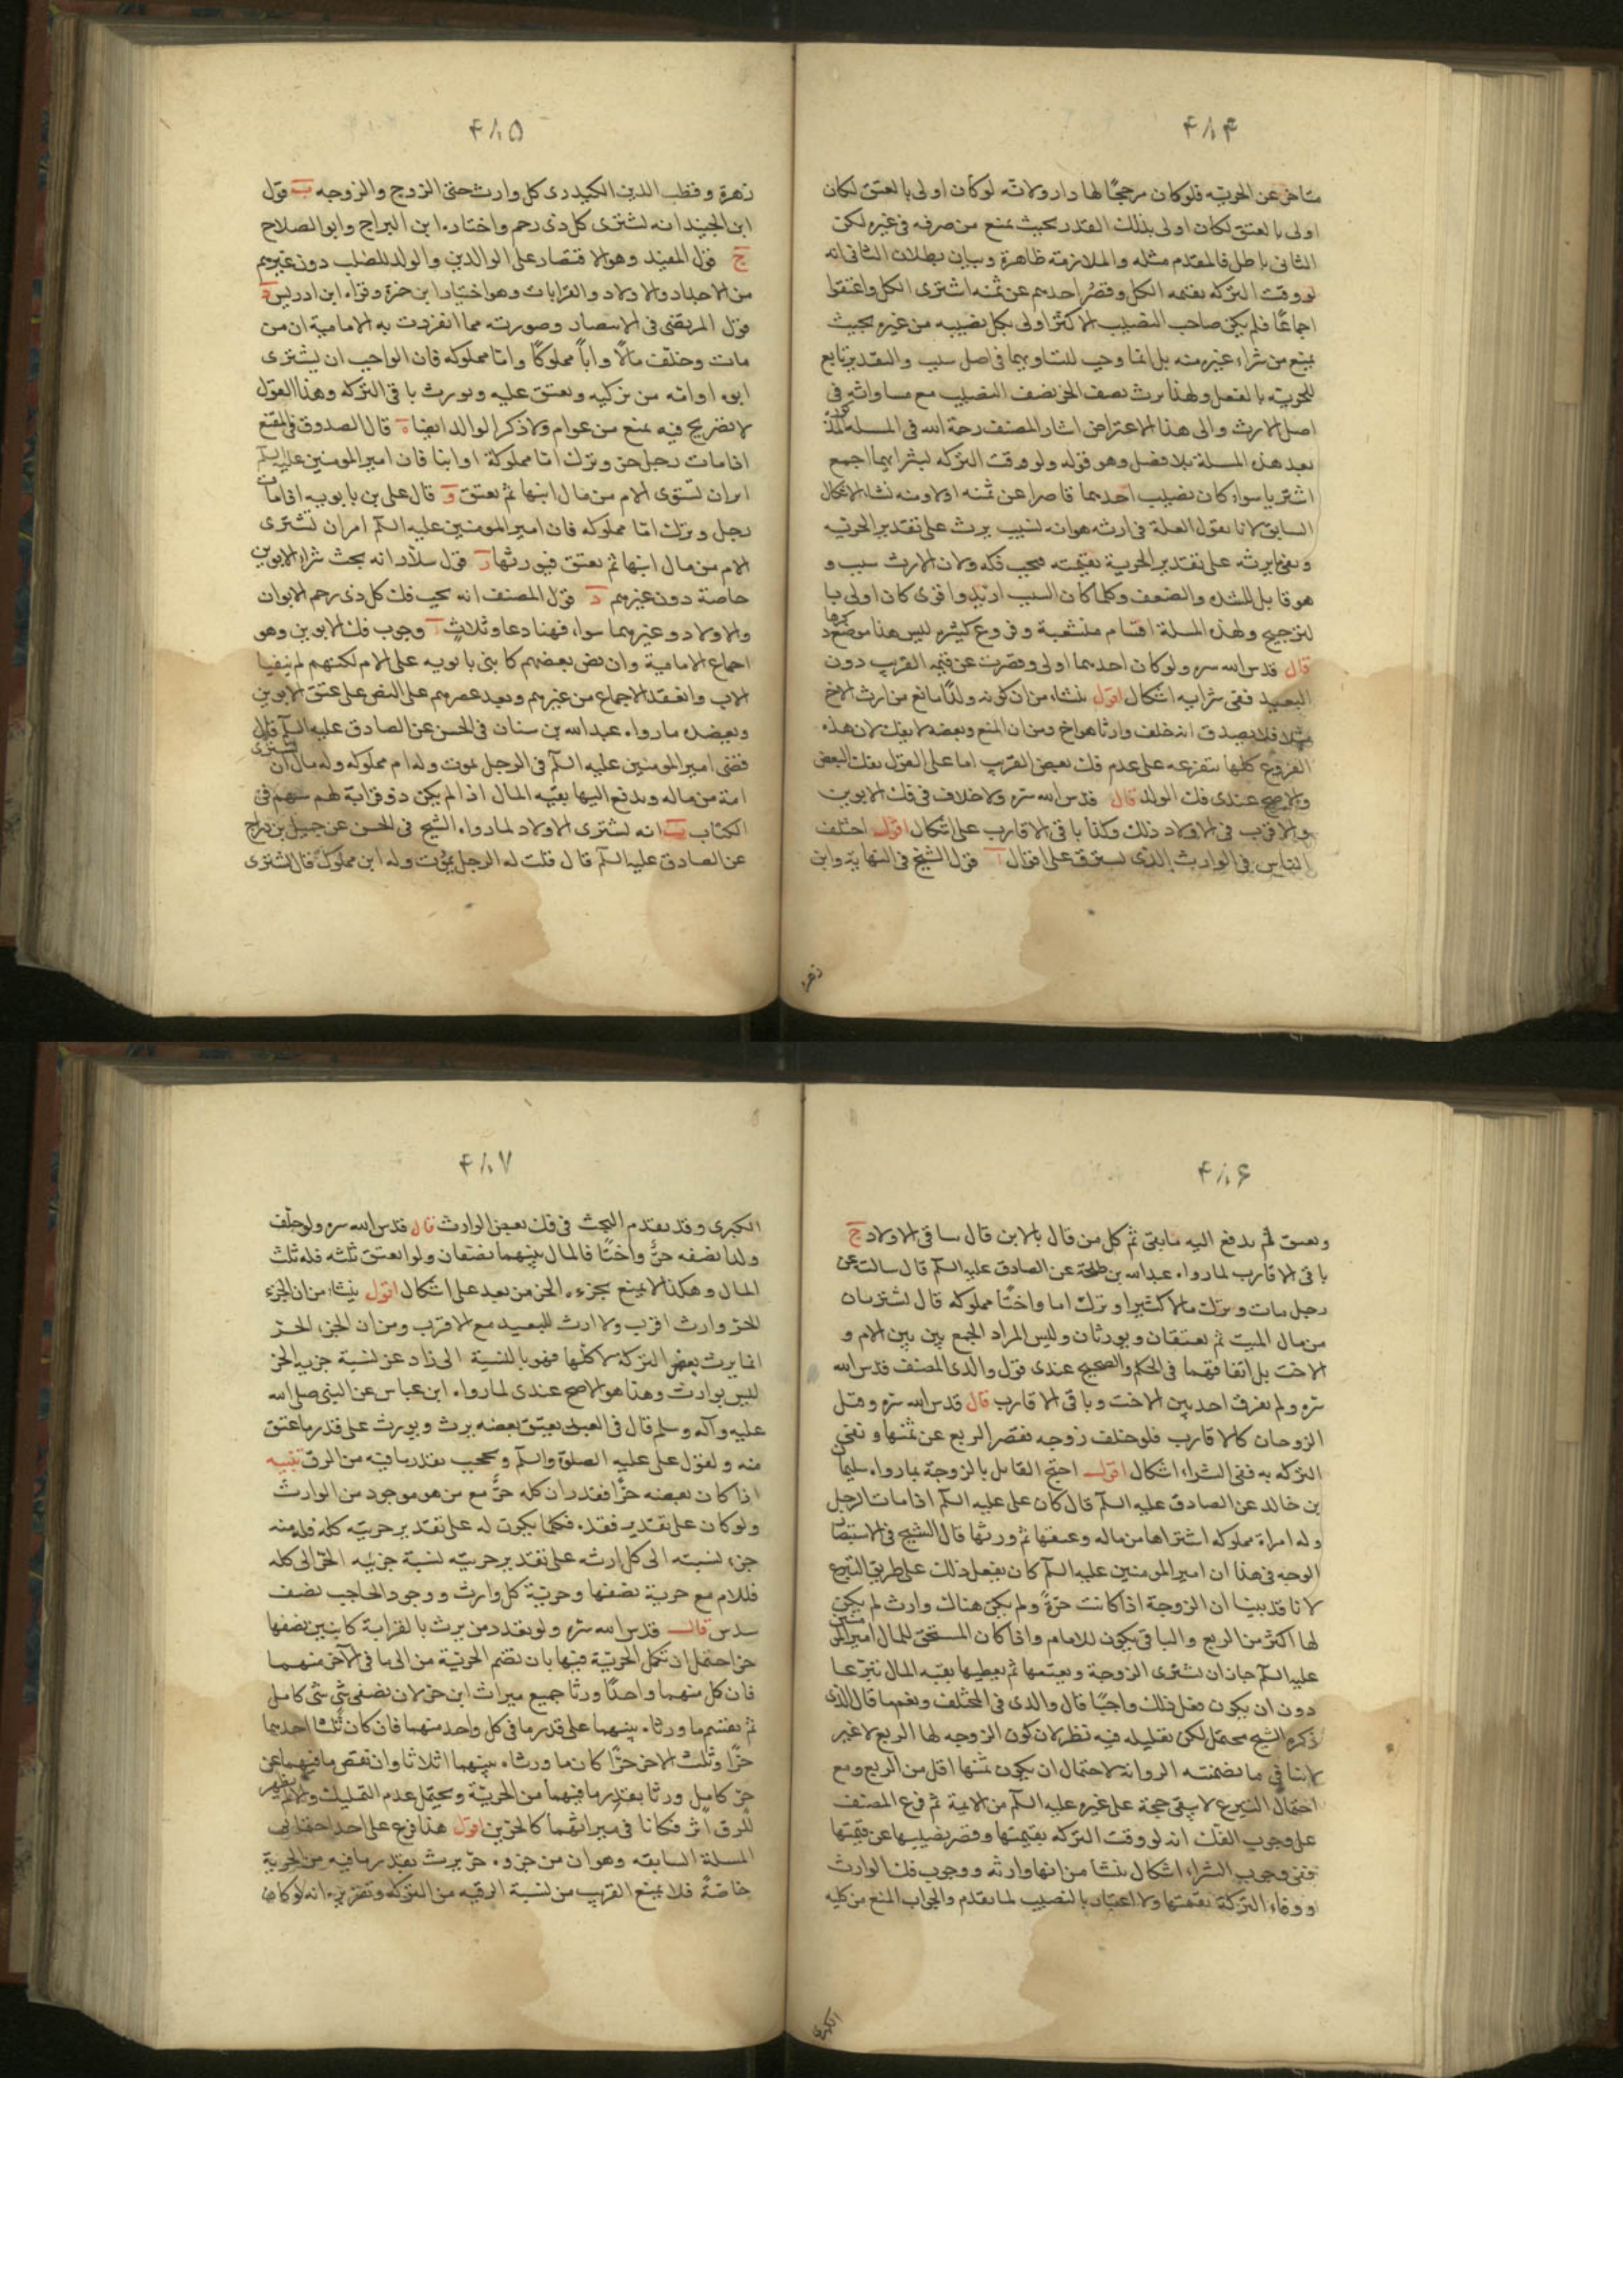 ۴۸۴
متاخر عن الحرية فلو كان مرجحًا لها دار ولانه لو كان اولى بالعتق لكان
اولى بالعتق لكان اولى بذلك القدر بحيث يمنع من صرفه فى غيره لكن
الثانى باطل فالمقدم مثله والملازمة ظاهرة وبيان بطلان الثانى انه
لو وفت التركه بقيمه الكل وقصر احدهم عن ثمنه اشترى الكل واعتقوا
اجماعًا فلم يكن صاحب النصيب الاكثر اولى بكل نصيبه من غيره بحيث
يمنع من شراء غيره منه بل انما وجب لتساويهما فى اصل سبب والتقدير تابع
للحرية بالفعل ولهذا يرث نصف الحر نصف النصيب مع مساواته فى
اصل الارث والى هذا الاعتراض اشار المصنف رحمة الله فى المسله المذكورة
بعد هذه المسلة بلا فصل وهو قوله ولو وفت التركه بشرائهما اجمع
اشتريا سواء كان نصيب احدهما قاصرا عن ثمنه اولا ومنه نشا الاشكال
السابق لانا نقول العلة فى ارثه هو انه لسبب يرث على تقدير الحريه
و يفى ارثه على تقدير الحرية بقيمته فيجب فكه ولان الارث سبب و
هو قابل للشده والضعف وكلما كان السبب ازيد واقوى كان اولى با
لترجيح ولهذه المسلة اقسام منشعبة وفروع كثيره ليس هذا موضع ذكرها
قال قدس الله سره ولو كان احدهما اولى وقصرت عن قيمه القريب دون
البعيد ففى شرايه اشكال اقول ينشاء من ان كونه ولدًا مانع من ارث الاخ
مثلا فلا يصدق انه خلف وارثا هو اخ ومن ان المنع وبعضه لا يفك لان هذه
الفروع كلها متفرعه على عدم فك بعض القريب اما على القول بفك البعض
والاصح عندى فك الولد قال قدس الله سره ولا خلاف فى فك الابوين
والاقرب فى الاولاد ذلك وكذا باقى الاقارب على اشكال اقول اختلف
الناس فى الوارث الذى يسترق على اقوال آ قول الشيخ فى النهاية وابن
زهرة
۴۸۵
زهرة وقطب الدين الكيدرى كل وارث حتى الزوج والزوجه ب قول
ابن الجنيد انه يشترى كل ذى رحم واختاره ابن البراج وابو الصلاح
ج قول المفيد وهو الاقتصار على الوالدين والولد للصلب دون غيرهم
من الاجداد والاولاد والقرابات وهو اختيار ابن حمزة وقواه ابن ادريس د
قول المرتضى فى الانتصار وصورته مما انفردت به الامامية ان من
مات وخلف مالًا وابًا مملوكًا واما مملوكه فان الواجب ان يشترى
ابوه او امه من تركته ويعتق عليه ويورث باقى التركه وهذا القول
لا تصريح فيه بمنع من عوام ولا ذكر الوالد ايضا ه قال الصدوق فى المقنع
اذا مات رجل حر وترك اما مملوكة او ابنا فان امير المومنين عليه السلم
امر ان تشترى الام من مال ابنها ثم يعتق و قال على بن بابويه اذا مات
رجل وترك اما مملوكه فان امير المومنين عليه السلم امر ان تشترى
الام من مال ابنها ثم يعتق فيورثها ز قول سلار انه يجب شراء الابوين
خاصة دون غيرهم قول المصنف انه يجب فك كل ذى رحم الابوان
والاولاد وغيرهما سواء فهنا دعاو ثلاث آ وجوب فك الابوين وهو
اجماع الامامية وان نص بعضهم كابنى بابويه على الام لكنهم لم ينفيا
الاب وانعقد الاجماع من غيرهم وبعد عصرهم على النص على عتق الابوين
ويعضده ما رواه عبد الله بن سنان فى الحسن عن الصادق عليه السلم قال
قضى امير المومنين عليه السلم فى الرجل يموت وله ام مملوكه وله مال ان تشترى
امه من ماله ويدفع اليها بقيه المال اذا لم يكن ذو قرابة لهم سهم فى
الكتاب ب انه يشترى الاولاد لما رواه الشيخ فى الحسن عن جميل بن دراج
عن الصادق عليه السلم قال قلت له الرجل يموت وله ابن مملوك قال يشترى
۴۸۶
ويعتق ثم يدفع اليه ما بقى ثم كل من قال بالابن قال بباقى الاولاد ج
باقى الاقارب لما رواه عبد الله بن طلحة عن الصادق عليه السلم قال سالت عن
رجل مات وترك مالا كثيرا وترك اما واختًا مملوكه قال تشتريان
من مال الميت ثم تعتقان ويورثان وليس المراد الجمع بين بين الام و
الاخت بل اتفاقهما فى الحكم والصحيح عندى قول والدى المصنف قدس الله
سره ولم يفرق احد بين الاخت وباقى الاقارب قال قدس الله سره وهل
الزوجان كالاقارب فلو خلف زوجه تقصر الربع عن ثمنها وتفى
التركه به ففى الشراء اشكال اقول احتج القايل بالزوجة بما رواه سليمان
بن خالد عن الصادق عليه السلم قال كان على عليه السلم اذا مات الرجل
وله امراة مملوكه اشتراها من ماله وعتقها ثم ورثها قال الشيخ فى الاستبصار
الوجه فى هذا ان امير المومنين عليه السلم كان يفعل ذلك على طريق التبرع
لانا قد بينا ان الزوجة اذا كانت حرةً ولم يكن هناك وارث لم يكن
لها اكثر من الربع والباقى يكون للامام واذا كان المستحق للمال امير المومنين
عليه السلم جاز ان تشترى الزوجة ويعتقها ثم يعطيها بقيه المال تبرعا
دون ان يكون فعل ذلك واجبًا قال والدى فى المختلف ونعم ما قال الذى
ذكره الشيخ محتمل لكن تعليله فيه نظر لان كون الزوجه لها الربع لا غير
لا ينافى ما تضمنته الروايه لاحتمال ان يكون ثمنها اقل من الربع ومع
احتمال التبرع لا يبقى حجة على غيره عليه السلم من الايمة ثم فرع المصنف
على وجوب الفك انه لو وفت التركه بقيمتها وقصر نصيبها عن قيمتها
ففى وجوب الشراء اشكال ينشا من انها وارثه ووجوب فك الوارث
ووفاء التركة بقيمتها ولا اعتبار بالنصيب لما تقدم والجواب المنع من كليه
الكبرى
۴۸۷
الكبرى وقد تقدم البحث فى فك بعض الوارث قال قدس الله سره ولو خلف
ولدا نصفه حر واختًا فالمال بينهما نصفان ولو انعتق ثلثه فله ثلث
المال وهكذا لا يمنع بجزءه الحر من بعد على اشكال اقول ينشاء من ان الجزء
الحر وارث اقرب ولا ارث للبعيد مع الاقرب ومن ان الجزء الحر
انما يرث بعض التركه لا كلها فهو بالنسبة الى زاد عن نسبة جزيه الحر
ليس بوارث وهذا هو الاصح عندى لما رواه ابن عباس عن النبى صلى الله
عليه وآله وسلم قال فى العبد يعتق بعضه يرث ويورث على قدر ما عتق
منه ولقول على عليه الصلوة والسلم ويحجب بقدر ما فيه من الرق تنبيه
اذا كان بعضه حرًا فقدر ان كله حرٌ مع من هو موجود من الوارث
ولو كان على تقدير فقده فكلما يكون له على تقدير حريته كله فله منه
جزء نسبته الى كل ارثه على تقدير حريته نسبة جزئيه الحر الى كله
فللام مع حرية نصفها وحرية كل وارث ووجود الحاجب نصف
سدس قال قدس الله سره ولو تعدد من يرث بالقرابة كابنين نصفهما
حر احتمل ان تكمل الحرية فيهما بان تضم الحرية من الى ما فى الآخر منهما
فان كل منهما واحدًا ورثا جميع ميراث ابن حر لان نصفى شى شى كامل
ثم يقتسم ما ورثاه بينهما على قدر ما فى كل واحد منهما فان كان ثلثا احدهما
حرًا وثلث الاخر حرًا كان ما ورثاه بينهما اثلاثا وان نقص ما فيهما عن
حر كامل ورثا بقدر ما فيهما من الحرية ويحتمل عدم التكميل والا لم يظهر
للرق اثر فكانا فى ميراثهما كالحرين اقول هذا فرع على احد احتمالى
المسلة السابقه وهو ان من جزوه حر يرث بقدر ما فيه من الحرية
خاصةً فلا يمنع القريب من نسبة الرقيه من التركه وتقريره انه لو كان